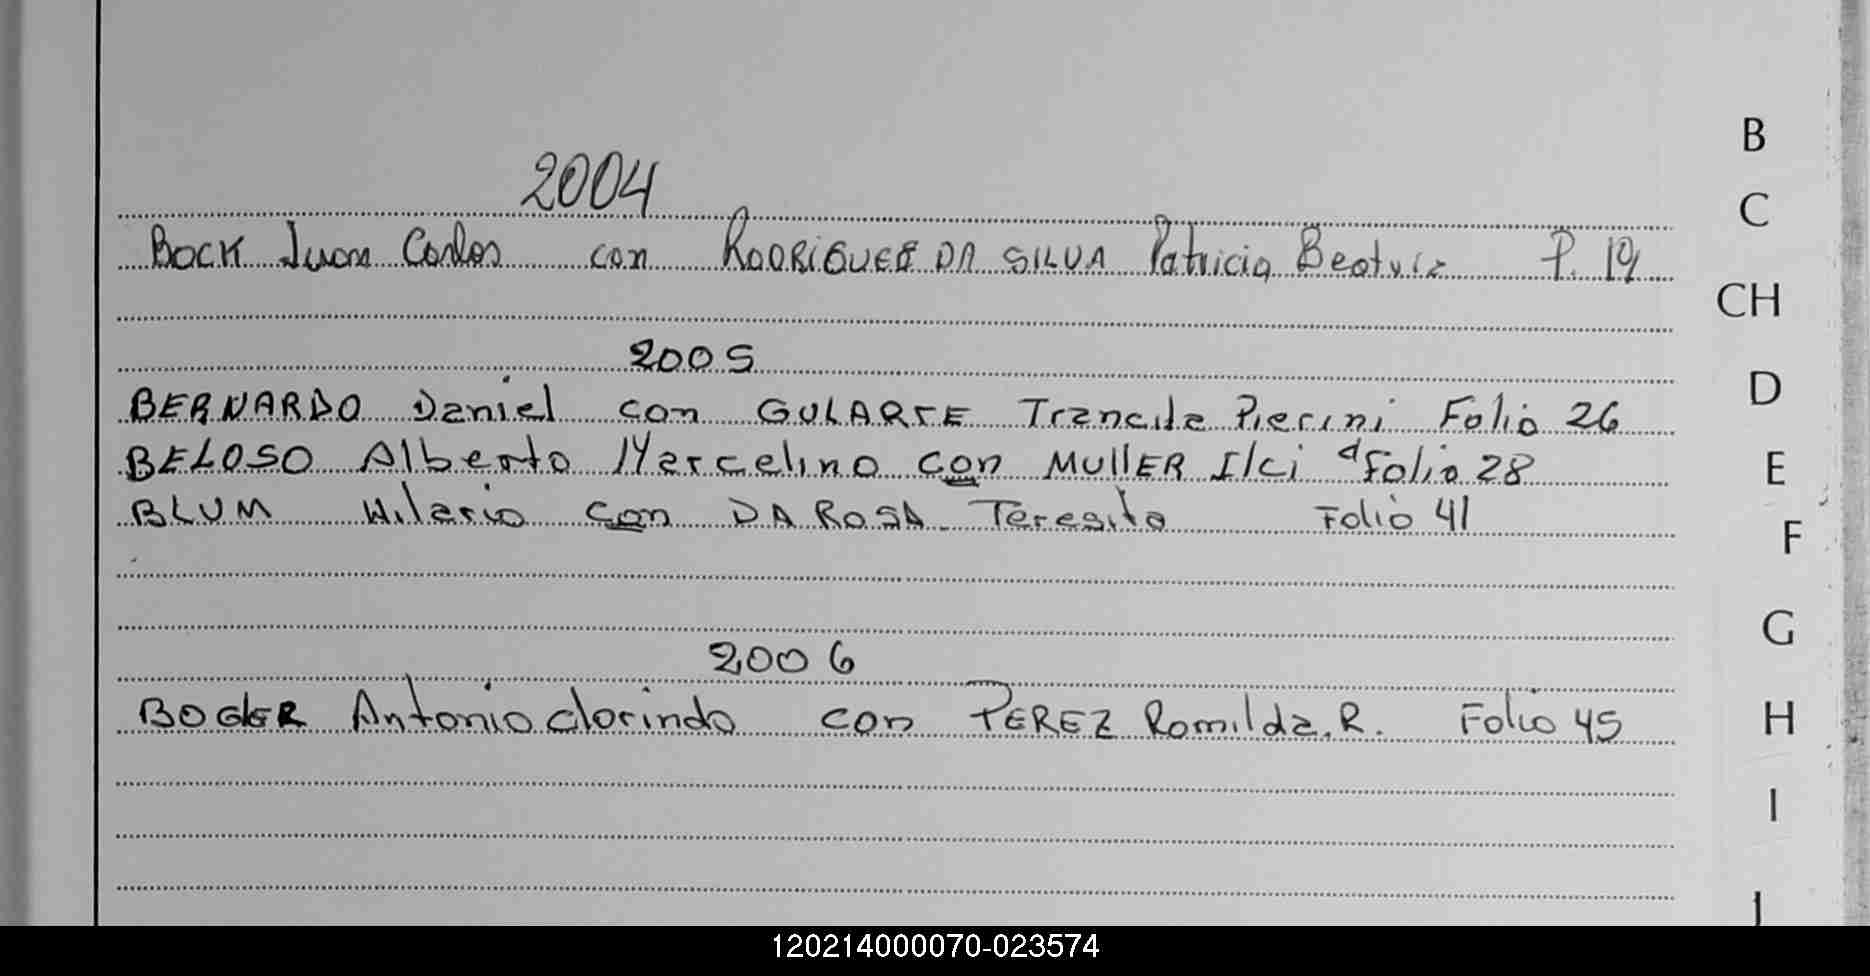 2004
BOCK Juan Carlos con RODRIGUEZ DA SILVA Patricia Beatriz P. 19
2005
BERNARDO Daniel con GULARTE Trancila Pierini Folio 26
BELOSO Alberto Marcelino con MULLER Ilci d Folio 28
BLUM Hilario con DA ROSA Teresita Folio 41
2006
BOGLER Antonio Clorindo con PEREZ Romilda. R. Folio 45
B
C
CH
D
E
F
G
H
I
J
120214000070-023574